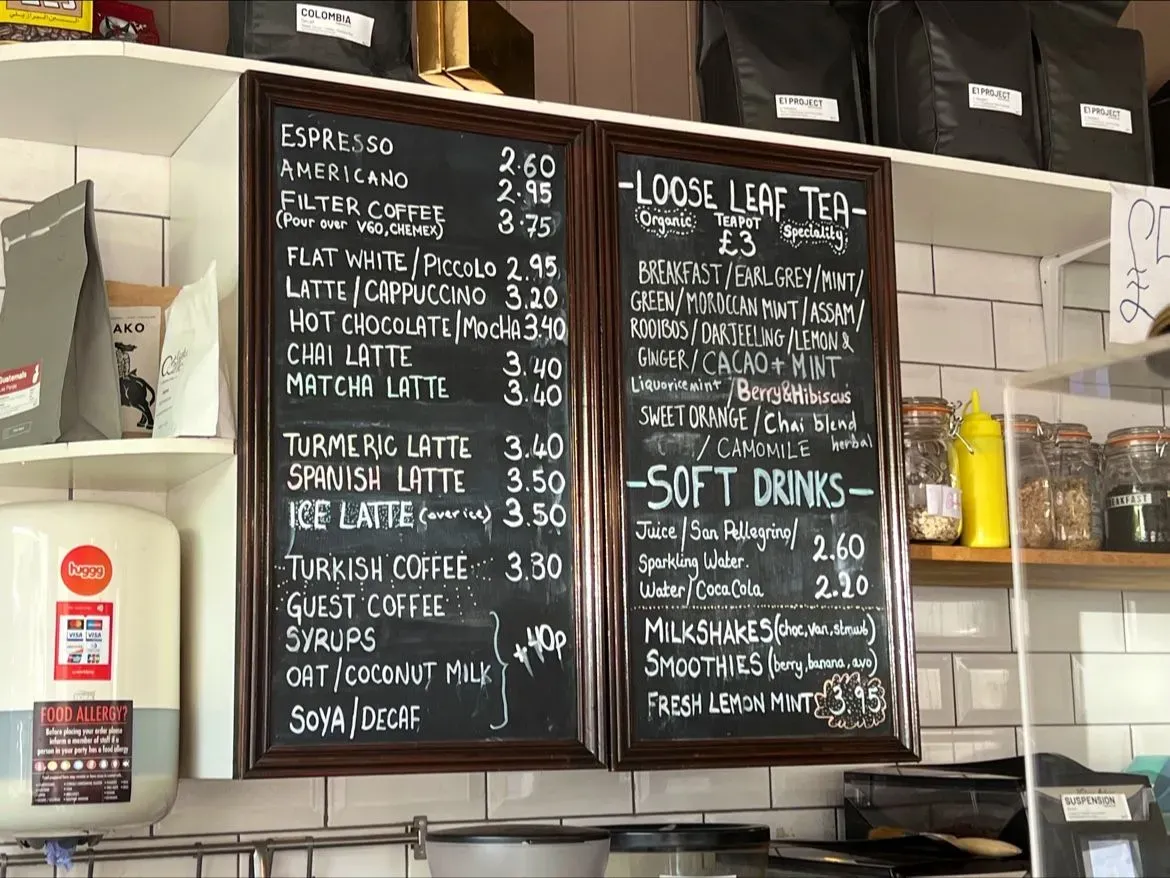 COLOMBIA
E1 PROJECT
E1 PROJECT
E1 PROJECT
ESPRESSO 2.60
AMERICANO 2.95
FILTER COFFEE 3.75
(Pour over V60, CHEMEX)
FLAT WHITE/PICCOLO 2.95
LATTE/CAPPUCCINO 3.20
HOT CHOCOLATE/MOCHA 3.40
CHAI LATTE 3.40
MATCHA LATTE 3.40
TURMERIC LATTE 3.40
SPANISH LATTE 3.50
ICE LATTE (over ice) 3.50
TURKISH COFFEE 3.30
GUEST COFFEE
SYRUPS
OAT/COCONUT MILK
SOYA/DECAF
+40p
-LOOSE LEAF TEA-
Organic TEAPOT Speciality
£3
BREAKFAST/EARL GREY/MINT/
GREEN/MOROCCAN MINT/ASSAM/
ROOIBOS/DARJEELING/LEMON &
GINGER/CACAO + MINT
Liquorice mint/Berry&Hibiscus
SWEET ORANGE/Chai blend
/CAMOMILE herbal
-SOFT DRINKS-
Juice/San Pellegrino/
Sparkling Water. 2.60
Water/Coca Cola 2.20
MILKSHAKES (choc, van, strwb)
SMOOTHIES (berry, banana, avo)
FRESH LEMON MINT 3.95
AKO
Guatemala
huggg
VISA VISA
FOOD ALLERGY?
Before placing your order please
inform a member of staff if a
person in your party has a food allergy
BREAKFAST
SUSPENSION